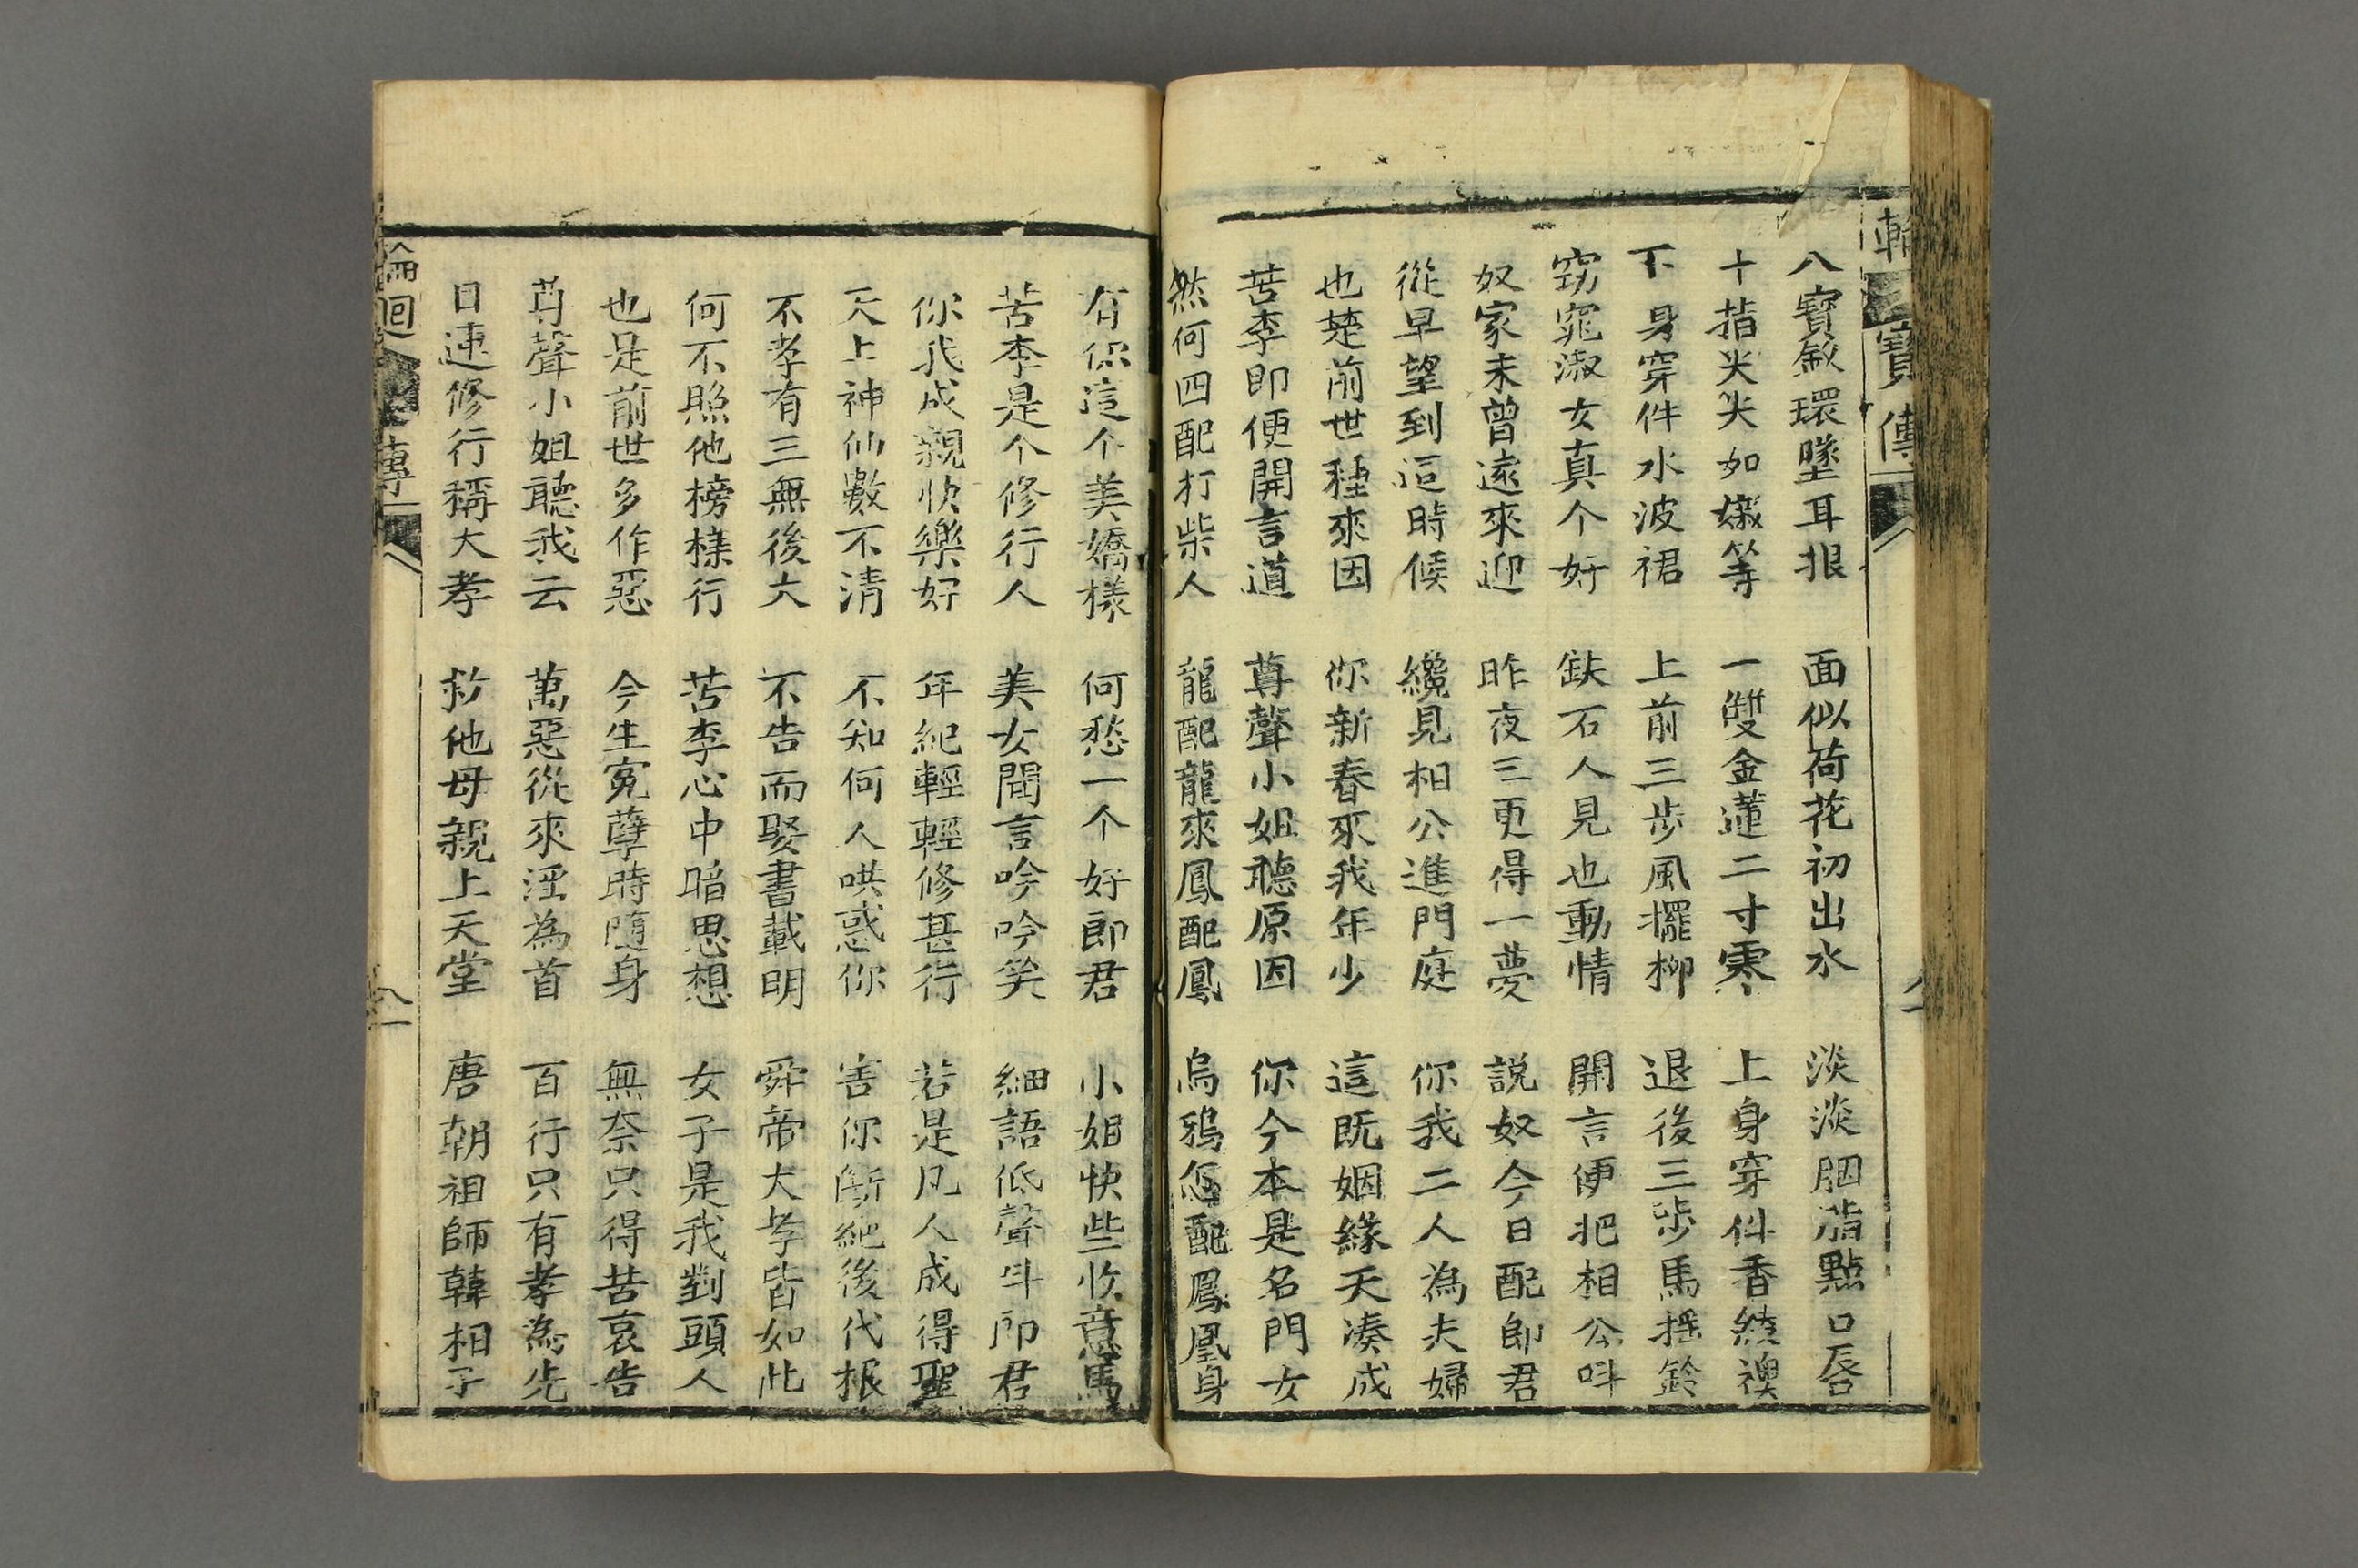 八寶敏環墜耳根 面似荷花初出水 淡淡胭脂點口唇
十指尖尖如嫩等 一雙金蓮二寸零 上身穿件香綾襖
下身穿件水波裙 上前三步風擺柳 退後三步馬摇鈴
窈窕淑女真个好 鉄石人見也動情 開言便把相公呌
奴家未曾遠來迎 昨夜三更得一夢 説奴今日配郎君
從早望到這時候 纔見相公進門庭 你我二人為夫婦
也楚前世種來因 你新春來我年少 這既姻緣天湊成
苦李即便開言道 尊聲小姐聽原因 你今本是名門女
然何四配打柴人 龍配龍來鳳配鳳 烏鴉怎配鳳凰身
有你這个美嬌樣 何愁一个好郎君 小姐快些收意馬
苦李是个修行人 美女聞言吟吟笑 細語低聲呌郎君
你我成親快樂好 年紀輕輕修甚行 若是凡人成得聖
天上神仙數不清 不知何人哄惑你 害你断絶後代根
不孝有三無後大 不告而娶書載明 舜帝大孝皆如此
何不照他榜樣行 苦李心中暗思想 女子是我對頭人
也是前世多作惡 今生寃孽時隨身 無奈只得苦哀告
尊聲小姐聽我云 萬惡從來淫為首 百行只有孝為先
目連修行稱大孝 救他母親上天堂 唐朝祖師韓相子
輪 寶傳
輪迴 傳
八一